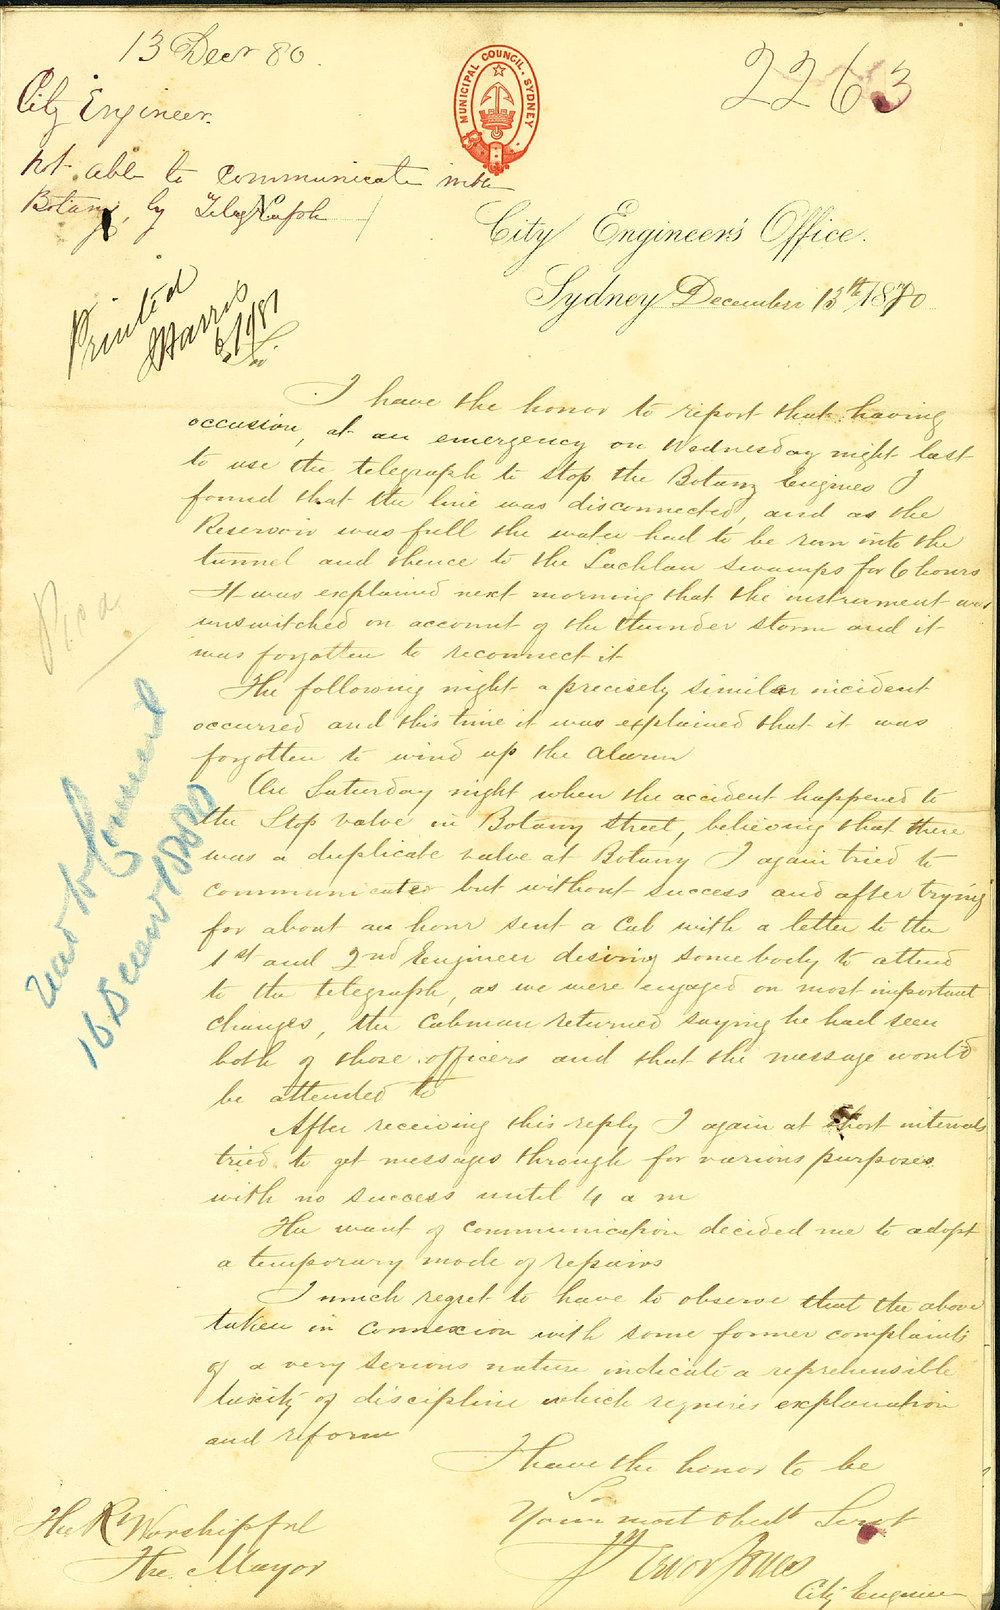 13 Decr 80.
2263
City Engineer.
MUNICIPAL COUNCIL. SYDNEY
not able to communicate with
Botany, by Telegraph
City Engineer's Office.
Sydney December 13th 1880
Printed
Harris
Sir
I have the honor to report that having
occasion, at an emergency on Wednesday night last
to use the telegraph to stop the Botany Engines I
found that the line was disconnected, and as the
Reservoir was full the water had to be run into the
tunnel and thence to the Lachlan swamps for 6 hours
It was explained next morning that the instrument was
unswitched on account of the thunder storm and it
was forgotten to reconnect it
The following night a precisely similar incident
occurred and this time it was explained that it was
forgotten to wind up the alarm
On Saturday night when the accident happened to
the Stop valve in Botany Street, believing that there
was a duplicate valve at Botany I again tried to
communicate but without success and after trying
for about an hour sent a Cab with a letter to the
1st and 2nd Engineer desiring somebody to attend
to the telegraph, as we were engaged on most important
changes, the Cabman returned saying he had seen
both of those officers and that the message would
be attended to
After receiving this reply I again at short intervals
tried to get messages through for various purposes
with no success until 4 a m
The want of communication decided me to adopt
a temporary mode of repairs
I much regret to have to observe that the above
taken in connexion with some former complaints
of a very serious nature indicate a reprehensible
laxity of discipline which requires explanation
and reform
I have the honor to be
Sir
Your most obedt Servt
Trevor Jones
City Engineer
The Rt Worshipful
The Mayor
Read to Council
16 Decem 1880